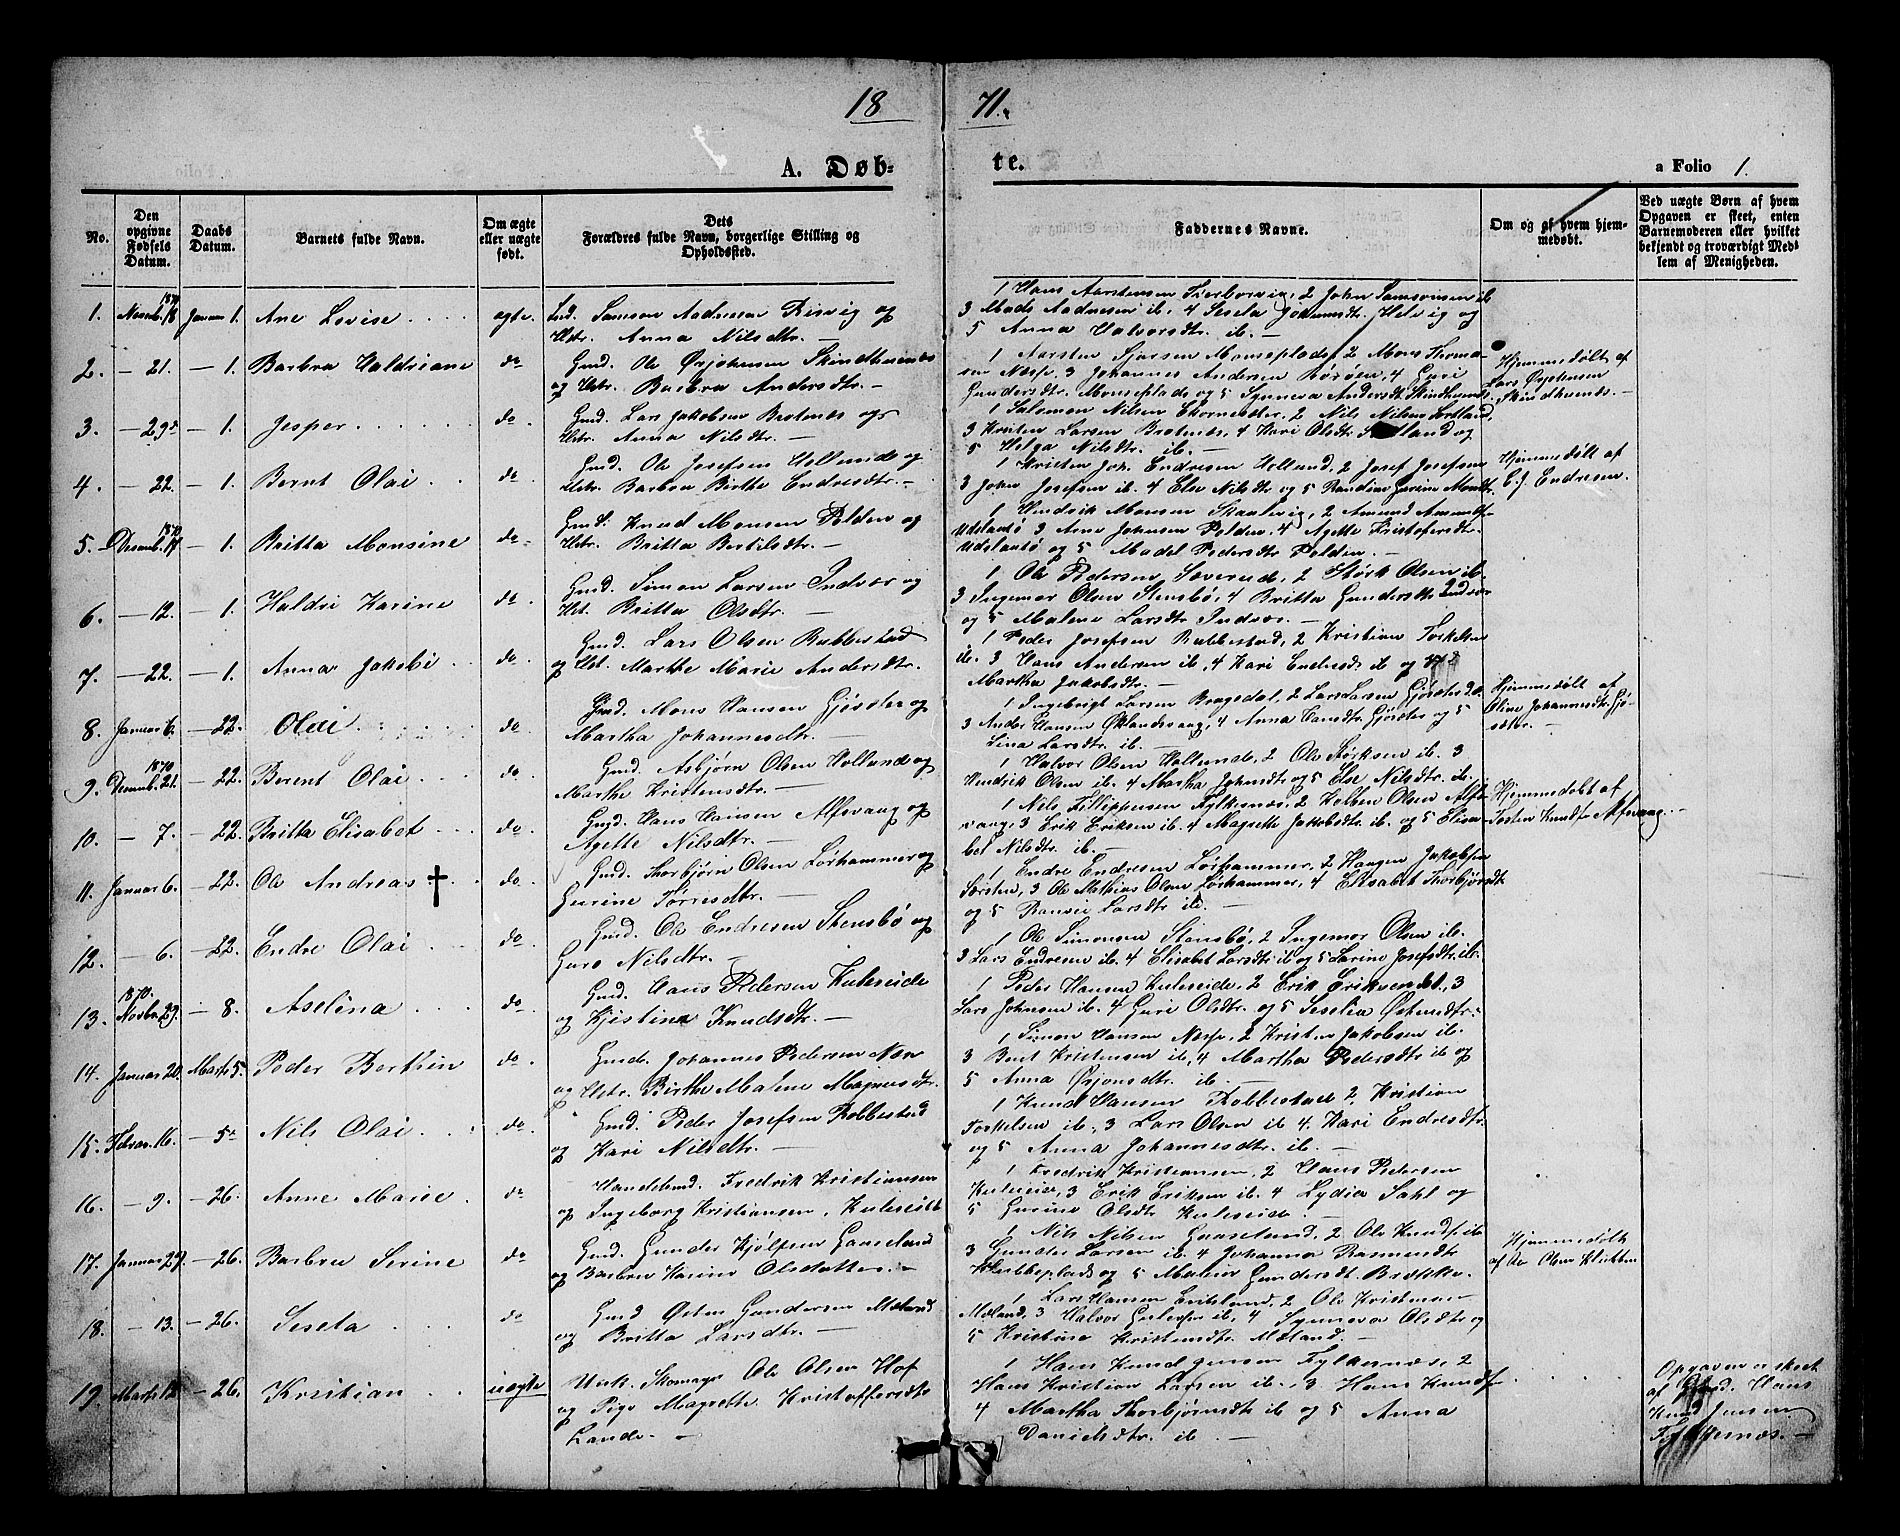 18 71.
A. Døb- te.
a Folio 1.
No.
Den opgivne Fødsels Datum.
Daabs Datum.
Barnets fulde Navn.
Om ægte eller uægte født.
Dets Forældres fulde Navn, borgerlige Stilling og Opholdssted.
Faddernes Navne.
Om og af hvem hjemmedøbt.
Ved uægte Børn af hvem Opgaven er skeet, enten Barnemoderen eller hvilket bekjendt og troværdigt Medlem af Menigheden.
1. 1870 Novemb. 18 Januar 1. Ane Lovise ægte.
Samson Aadnesen Risvig og
Hstr. Anna Nilsdtr. —
1 Hans Aarstensen 2 John Samsonsen ib
3 Mads Aadnesen ib. 4 Sesela Helvig og
5 Anna Halvorsdtr. ib. —
2. — 21. — 1. Barbra Haldriane do
Gmd. Ole Ørjohnsen Skindhuenes
og Hstr. Barbra Andersdtr. —
1 Aarsten Sjursen Monseplads, 2 Mons Thoma-
sen Næsse, 3 Johannes Andersen Børøen, 4 Guri
Gundersdtr. Monseplads og 5 Synneva Andersdt. Skindhuenes
Hjemmedøbt af
Lars Ørjohnsen
Skindhuenes. —
3. — 29de — 1. Jesper do
Gmd. Lars Jakobsen Brotnæs og
Hstr. Anna Nilsdtr. —
1 Salomon Nilsen 2 Nils Nilsen Sortland,
3 Kristen Larsen Brotnæs, 4 Kari Olsdtr. og
5 Helga Nilsdtr. ib. —
4. — 22. — 1. Bernt Olai do
Gmd. Ole Josefsen Hollund og
Hstr. Barbra Birthe Endresdtr. —
1 Kristen Joh. Endresen Hollund, 2 Josef Josefsen
3 John Josefsen ib. 4 Else Nilsdtr og 5 Randine Gurine
Hjemmedøbt af
C. J. Endresen.
5. 1870 Decemb. 17 — 1. Britta Monsine do
Gmd. Knud Monsen Polden og
Hstr. Britta Bertilsdtr. —
1 Hendrik Monsen 2 Amund
Udslantø 3 Arne Johnsen Polden, 4 Agette Kristofersdtr.
Udslantø og 5 Madel Pedersdtr Polden. —
6. — 12. — 1. Haldri Karine do
Gmd. Simon Larsen Indvær og
Hst. Britta Olsdtr. —
1 Ole Pedersen Sæverud, 2 Størk Olsen ib.
3 Ingemar Olsen Stensbø, 4 Britta Gundersdtr Indvær
og 5 Malene Larsdtr Indvær. —
7. — 22. — 1. Anna Jakobi do
Gmd. Lars Olsen Rubbestad
og Hst. Marthe Marie Andersdtr.
1 Peder Josefsen Rubbestad, 2 Kristian Torkelsen
ib. 3 Hans Andersen ib, 4 Kari Endresdt. ib og 5
Martha Jakobsdtr. —
8. Januar 6. — 22. Olai do
Gmd. Mons Hansen Gjøster og
Martha Johannesdtr. —
1 Ingebrigt Larsen Bragedal, 2 Lars Larsen Gjøster
3 Ander Hansen Øklandsvaag, 4 Anna Gjøster og 5
Lina Larsdtr. ib. —
Hjemmedøbt af
Oline Johannesdtr. Gjø-
ster. —
9. 1870 Decemb. 21. — 22. Berent Olai do
Gmd. Asbjørn Olsen Hollund og
Marthe Kristensdtr. —
1 Halvor Olsen Hollund, 2 Ole Størksen ib. 3
Hendrik Olsen ib. 4 Martha og 5 Else Nilsdtr. ib.
10. — 7. — 22. Britta Elisabet do
Gmd. Hans Hansen Alfsvaag og
Agette Nilsdtr. —
1 Nils Fillippensen Fylkesnæs, 2 Kolben Olsen Alfs-
vaag, 3 Erik Eriksen ib. 4 Magrette Jakobsdtr ib. og 5 Elisa-
bet Nilsdtr. ib. —
Hjemmedøbt af
Alfsvaag. —
11. Januar 6. — 22. Ole Andreas † do
Gmd. Thorbjørn Olsen Lørhammer og
Gurine Tørresdtr. —
1 Endre Endresen Lørhammer, 2 Haagen Jakobsen
Sørsten, 3 Ole Mathias Olsen Lørhammer, 4 Elisabet Thorbjørsdtr
og 5 Ranvei Larsdtr ib. —
12. — 6. — 22. Endre Olai do
Gmd. Ole Endresen Stensbø og
Guro Nilsdtr. —
1 Ole Simonsen Stensbø, 2 Ingemor Olsen ib.
3 Lars Endresen ib. 4 Elisabet Larsdtr ib og 5 Larine Josefsdtr. ib.
13. 1870. Novbr. 29. — 8. Aselina do
Gmd. Hans Pedersen Kuleseide
og Kjistina Knudsdtr. —
1 Peder Hansen Kuleseide, 2 Erik 3
Lars Johnsen ib. 4 Guri Olsdtr. og 5 Seselia
14. Januar 20. Marts 5. Peder Bertkin do
Gmd. Johannes Pedersen Næs
og Hstr. Birthe Malene Magnusdtr.
1 Simon Hansen Næsse, 2 Kristen Jakobsen ib.
3 Bent Kristensen ib, 4 Martha Pedersdtr ib og
5 Anna Ørjonsdtr. ib. —
15. Februar 16. — 5te Nils Olai do
Gmd. Peder Josefsen Robbestad
og Kari Nilsdtr. —
1 Knud Hansen Robbestad 2. Kristian
Torkelsen ib., 3 Lars Olsen ib 4. Kari Endresdtr
og 5 Anna Johannesdtr ib. —
16. — 9. — 26. Anne Marie do
Handelsmd. Fredrik Kristiansen
og Ingeborg Kristiansen, Kuleseide
1 Fredrik Kristiansen, 2 Hans Pedersen
Kuleseide, 3 Erik Eriksen ib. 4 Lydia Sahl og
5 Gurine Olsdtr Kuleseide. —
17. Januar 27. — 26. Barbra Serine do
Gmd. Gunder Kjølfsen Gaaseland
og Barbra Karine Olsdatter. —
1 Nils Nilsen Gaaseland, 2. Ole Knudsen ib
3 Gunder Larsen ib. 4 Johanna Rasmusdtr
og 5 Malene Gundersdt. Brække.
Hjemmedøbt
af Ole Olsen Klubben
18. — 13. — 26. Seseta do
Gmd Østen Gundersen Mæland
og Britta Larsdtr. —
1 Lars Hansen 2. Ole Kristensen
Mæland, 3 Halvor ib, 4 Synneva Olsdtr og
5 Kristine Kristensdtr. Mæland. —
19. Marts 12 — 26. Kristian uægte
Unk. Skomager Ole Olsen Hof
og Pige Magrette Kristoffersdtr
Lande. —
1 Hans Knud Jensen Fylkesnæs, 2
Hans Kristian Larsen ib. 3 Hans Knuds.
4 Martha Thorbjørnsdtr ib og 5 Anna
Danielsdtr. ib —
Opgaven er skeet
af Gmd. Hans
Knud Jensen
Fylkesnæs. —